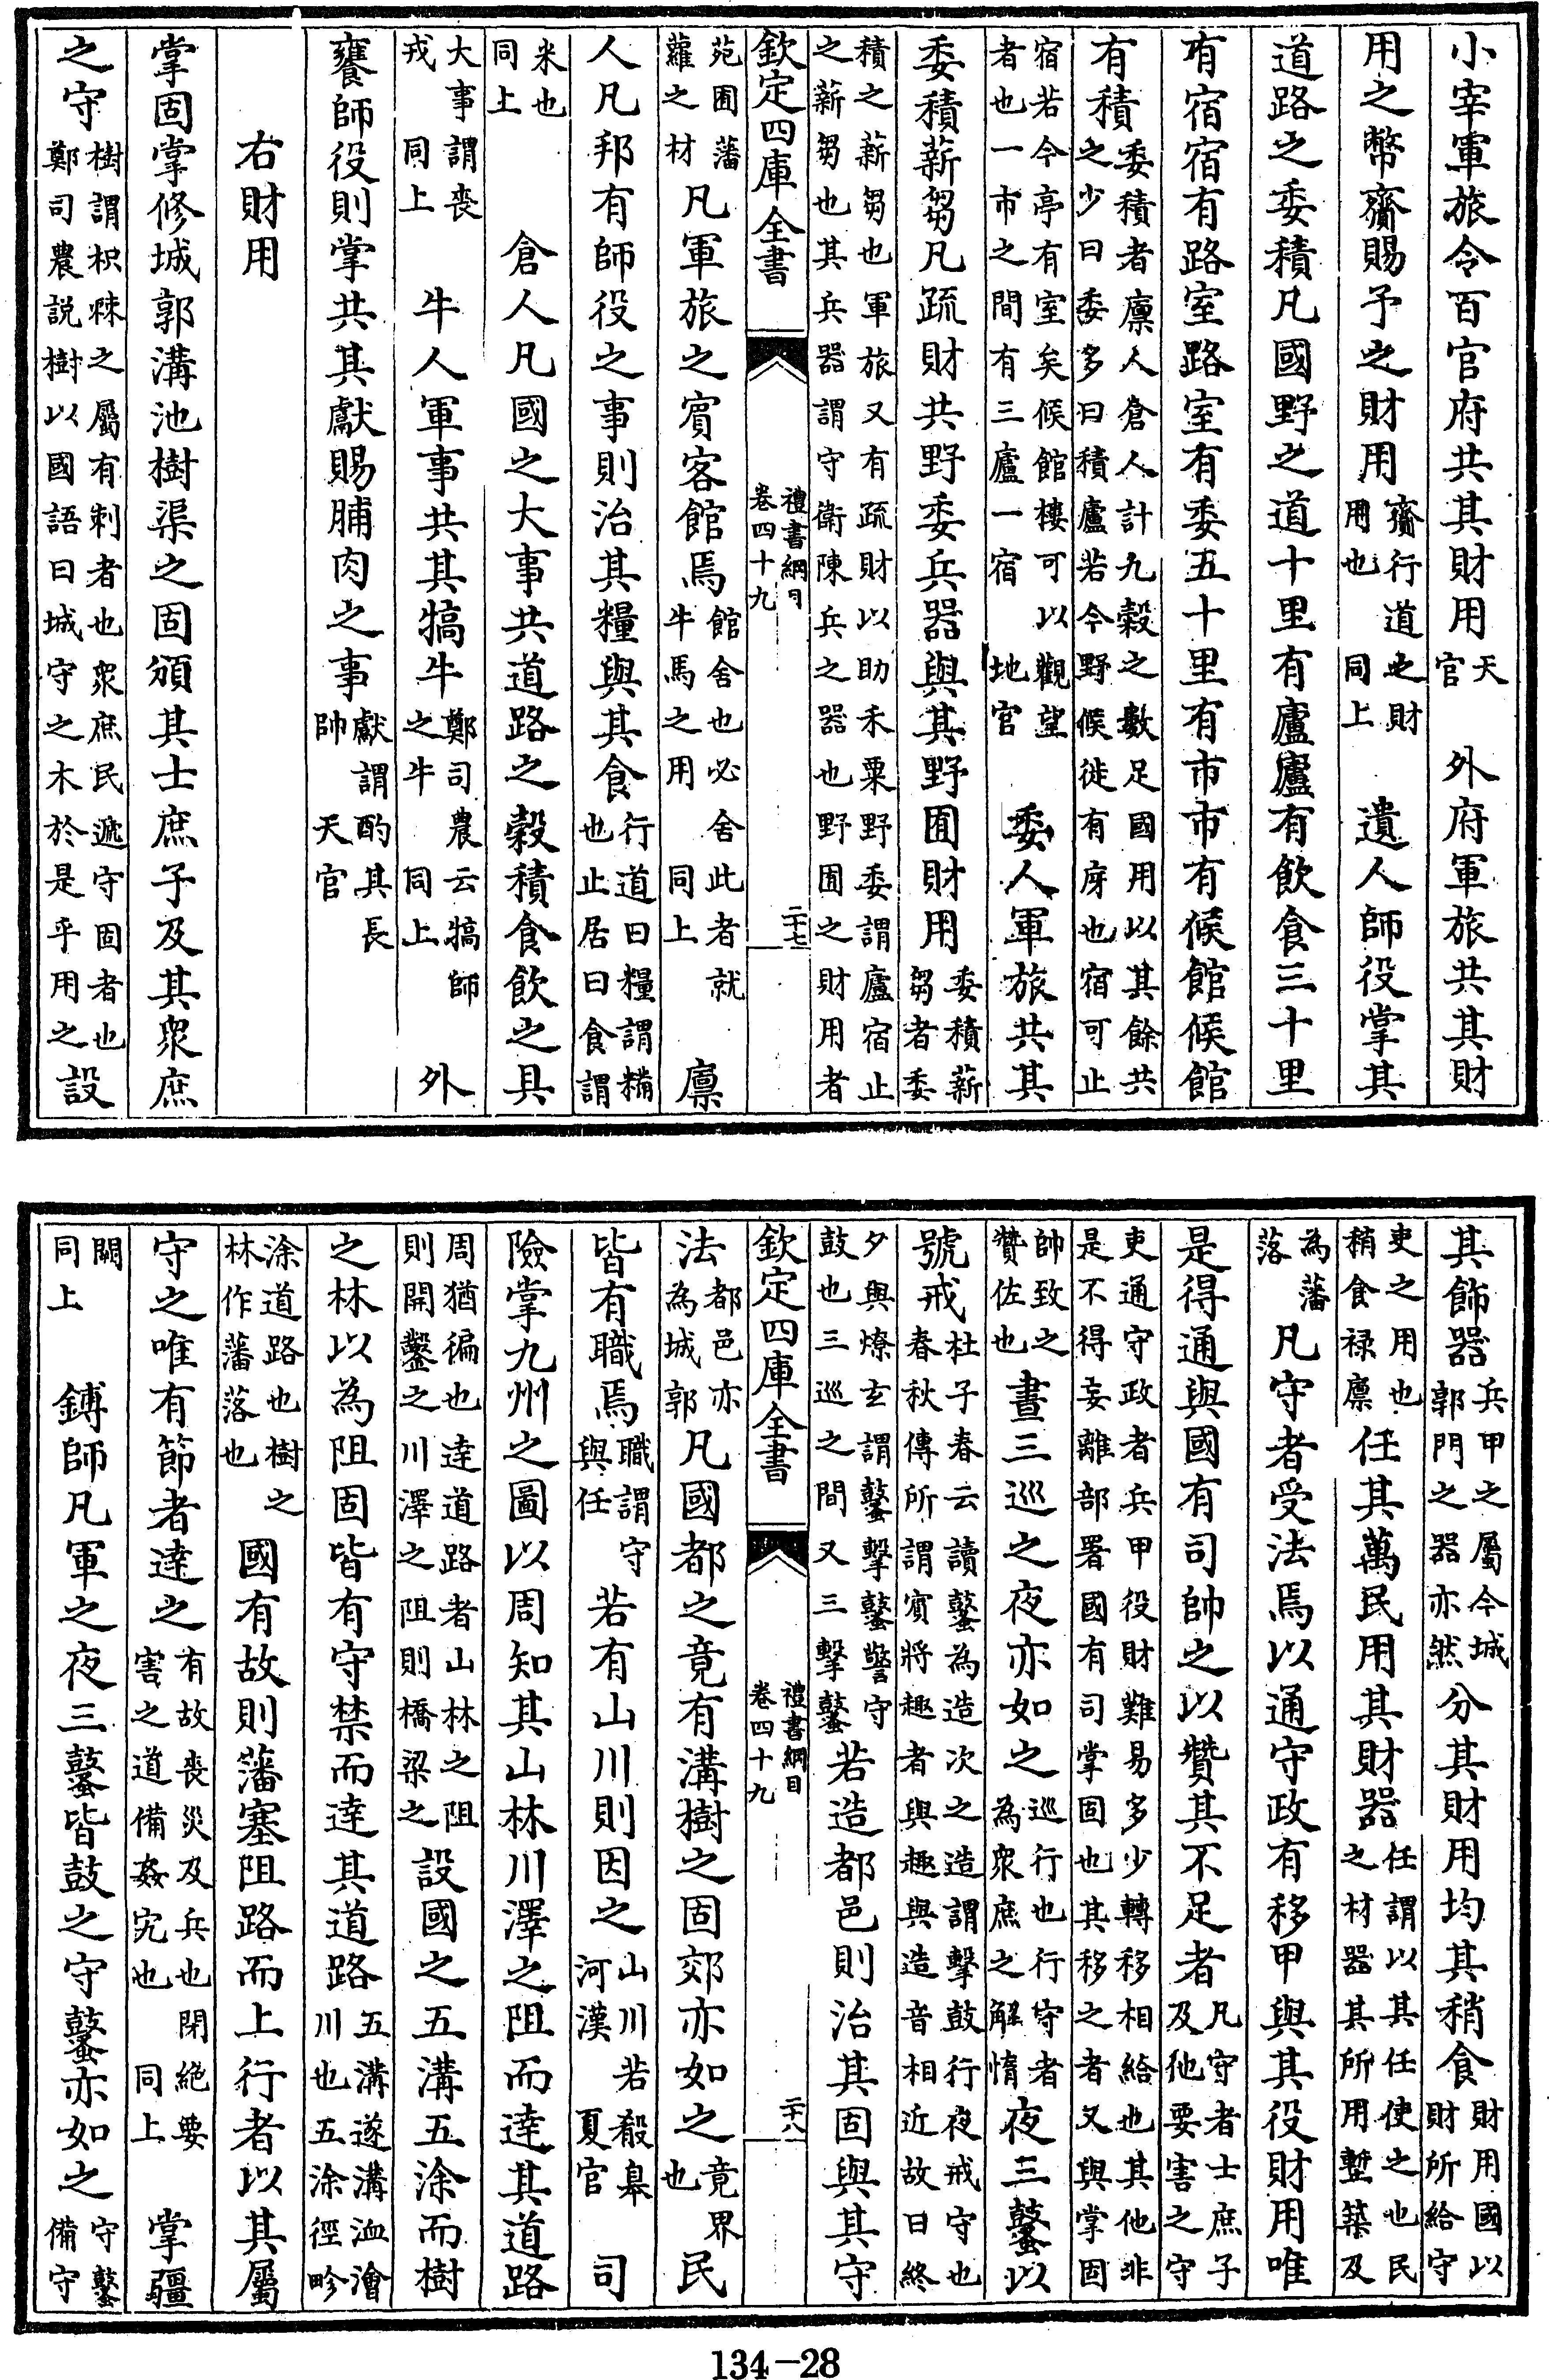 小宰軍旅令百官府共其財用天官　外府軍旅共其財
用之幣齎賜予之財用齎行道之財用也同上　遺人師役掌其
道路之委積凡國野之道十里有廬廬有飲食三十里
有宿宿有路室路室有委五十里有市市有候館候館
有積委積者廩人倉人計九穀之數足國用以其餘共之少曰委多曰積廬若今野候徙有庌也宿可止
宿若今亭有室矣候館樓可以觀望者也一市之間有三廬一宿地官　委人軍旅共其
委積薪芻凡疏財共野委兵器與其野囿財用委積薪芻者委
積之薪芻也軍旅又有疏財以助禾粟野委謂廬宿止之薪芻也其兵器謂守衛陳兵之器也野囿之財用者
欽定四庫全書　禮書綱目卷四十九　二十七
苑囿藩蘿之材凡軍旅之賓客館焉館舍也必舍此者就牛馬之用同上　廩
人凡邦有師役之事則治其糧與其食行道曰糧謂糒也止居曰食謂
米也同上　倉人凡國之大事共道路之穀積食飲之具
大事謂喪戎同上　牛人軍事共其犒牛鄭司農云犒師之牛同上　外
饔師役則掌共其獻賜脯肉之事獻謂酌其長帥天官
右財用
掌固掌修城郭溝池樹渠之固頒其士庶子及其眾庶
之守樹謂枳棘之屬有刺者也眾庶民遞守固者也鄭司農説樹以國語曰城守之木於是乎用之設
其飾器兵甲之屬今城郭門之器亦然分其財用均其稍食財用國以財所給守
吏之用也稍食祿廩任其萬民用其財器任謂以其任使之也民之材器其所用塹築及
為藩落凡守者受法焉以通守政有移甲與其役財用唯
是得通與國有司帥之以贊其不足者凡守者士庶子及他要害之守
吏通守政者兵甲役財難易多少轉移相給也其他非是不得妄離部署國有司掌固也其移之者又與掌固
帥致之贊佐也晝三巡之夜亦如之巡行也行守者為眾庶之解惰夜三鼜以
號戒杜子春云讀鼜為造次之造謂擊鼓行夜戒守也春秋傳所謂賓將趣者與趣與造音相近故曰終
夕與燎玄謂鼜擊鼜警守鼓也三巡之間又三擊鼜若造都邑則治其固與其守
欽定四庫全書　禮書綱目卷四十九　二十八
法都邑亦為城郭凡國都之竟有溝樹之固郊亦如之竟界也民
皆有職焉職謂守與任若有山川則因之山川若殽皋河漢夏官　司
險掌九州之圖以周知其山林川澤之阻而達其道路
周猶徧也達道路者山林之阻則開鑿之川澤之阻則橋梁之設國之五溝五涂而樹
之林以為阻固皆有守禁而達其道路五溝遂溝洫澮川也五涂徑畛
涂道路也樹之林作藩落也國有故則藩塞阻路而止行者以其屬
守之唯有節者達之有故喪災及兵也閉絕要害之道備姦宄也同上　掌疆
闕同上　鎛師凡軍之夜三鼜皆鼓之守鼜亦如之守鼜備守
134-28